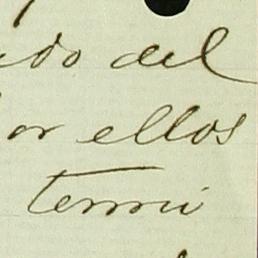 ido del
or ellos
termi